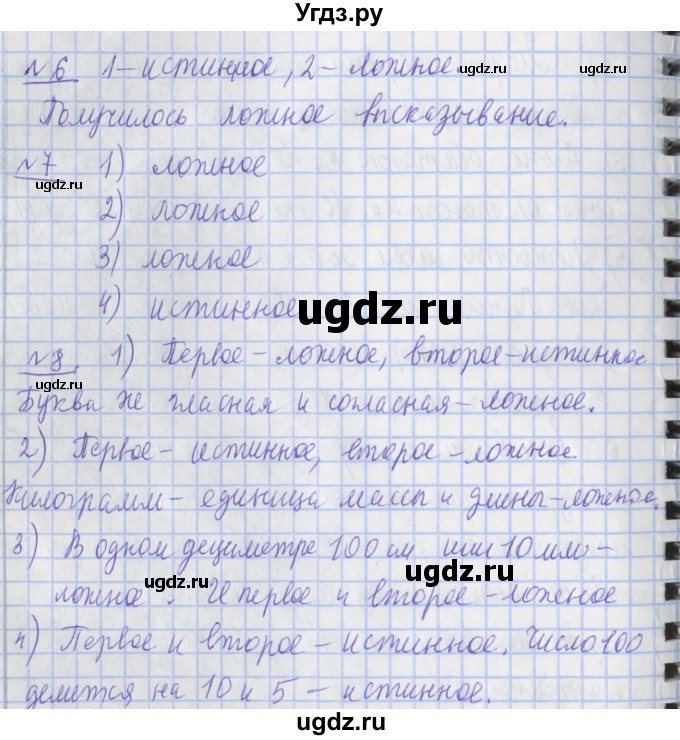 Угдз.ру
№6 1-истинное, 2-ложное.
ugdz.ru
ugdz.ru
Получилось ложное высказывание.
№7 1) ложное
ugdz.ru
2) ложное
3) ложное
4) истинное
ugdz.ru
№8. 1) Первое - ложное, второе - истинное
ugdz.ru
Буква Ж гласная и согласная - ложное.
2) Первое - истинное, второе - ложное
ugdz.ru
Килограмм - единица массы и длины - ложное.
3) В одном дециметре 100 см или 10 мм -
ugdz.ru
ugdz.ru
ложное. И первое и второе - ложное
4) Первое и второе - истинное. Число 100
делится на 10 и 5 - истинное.
ugdz.ru